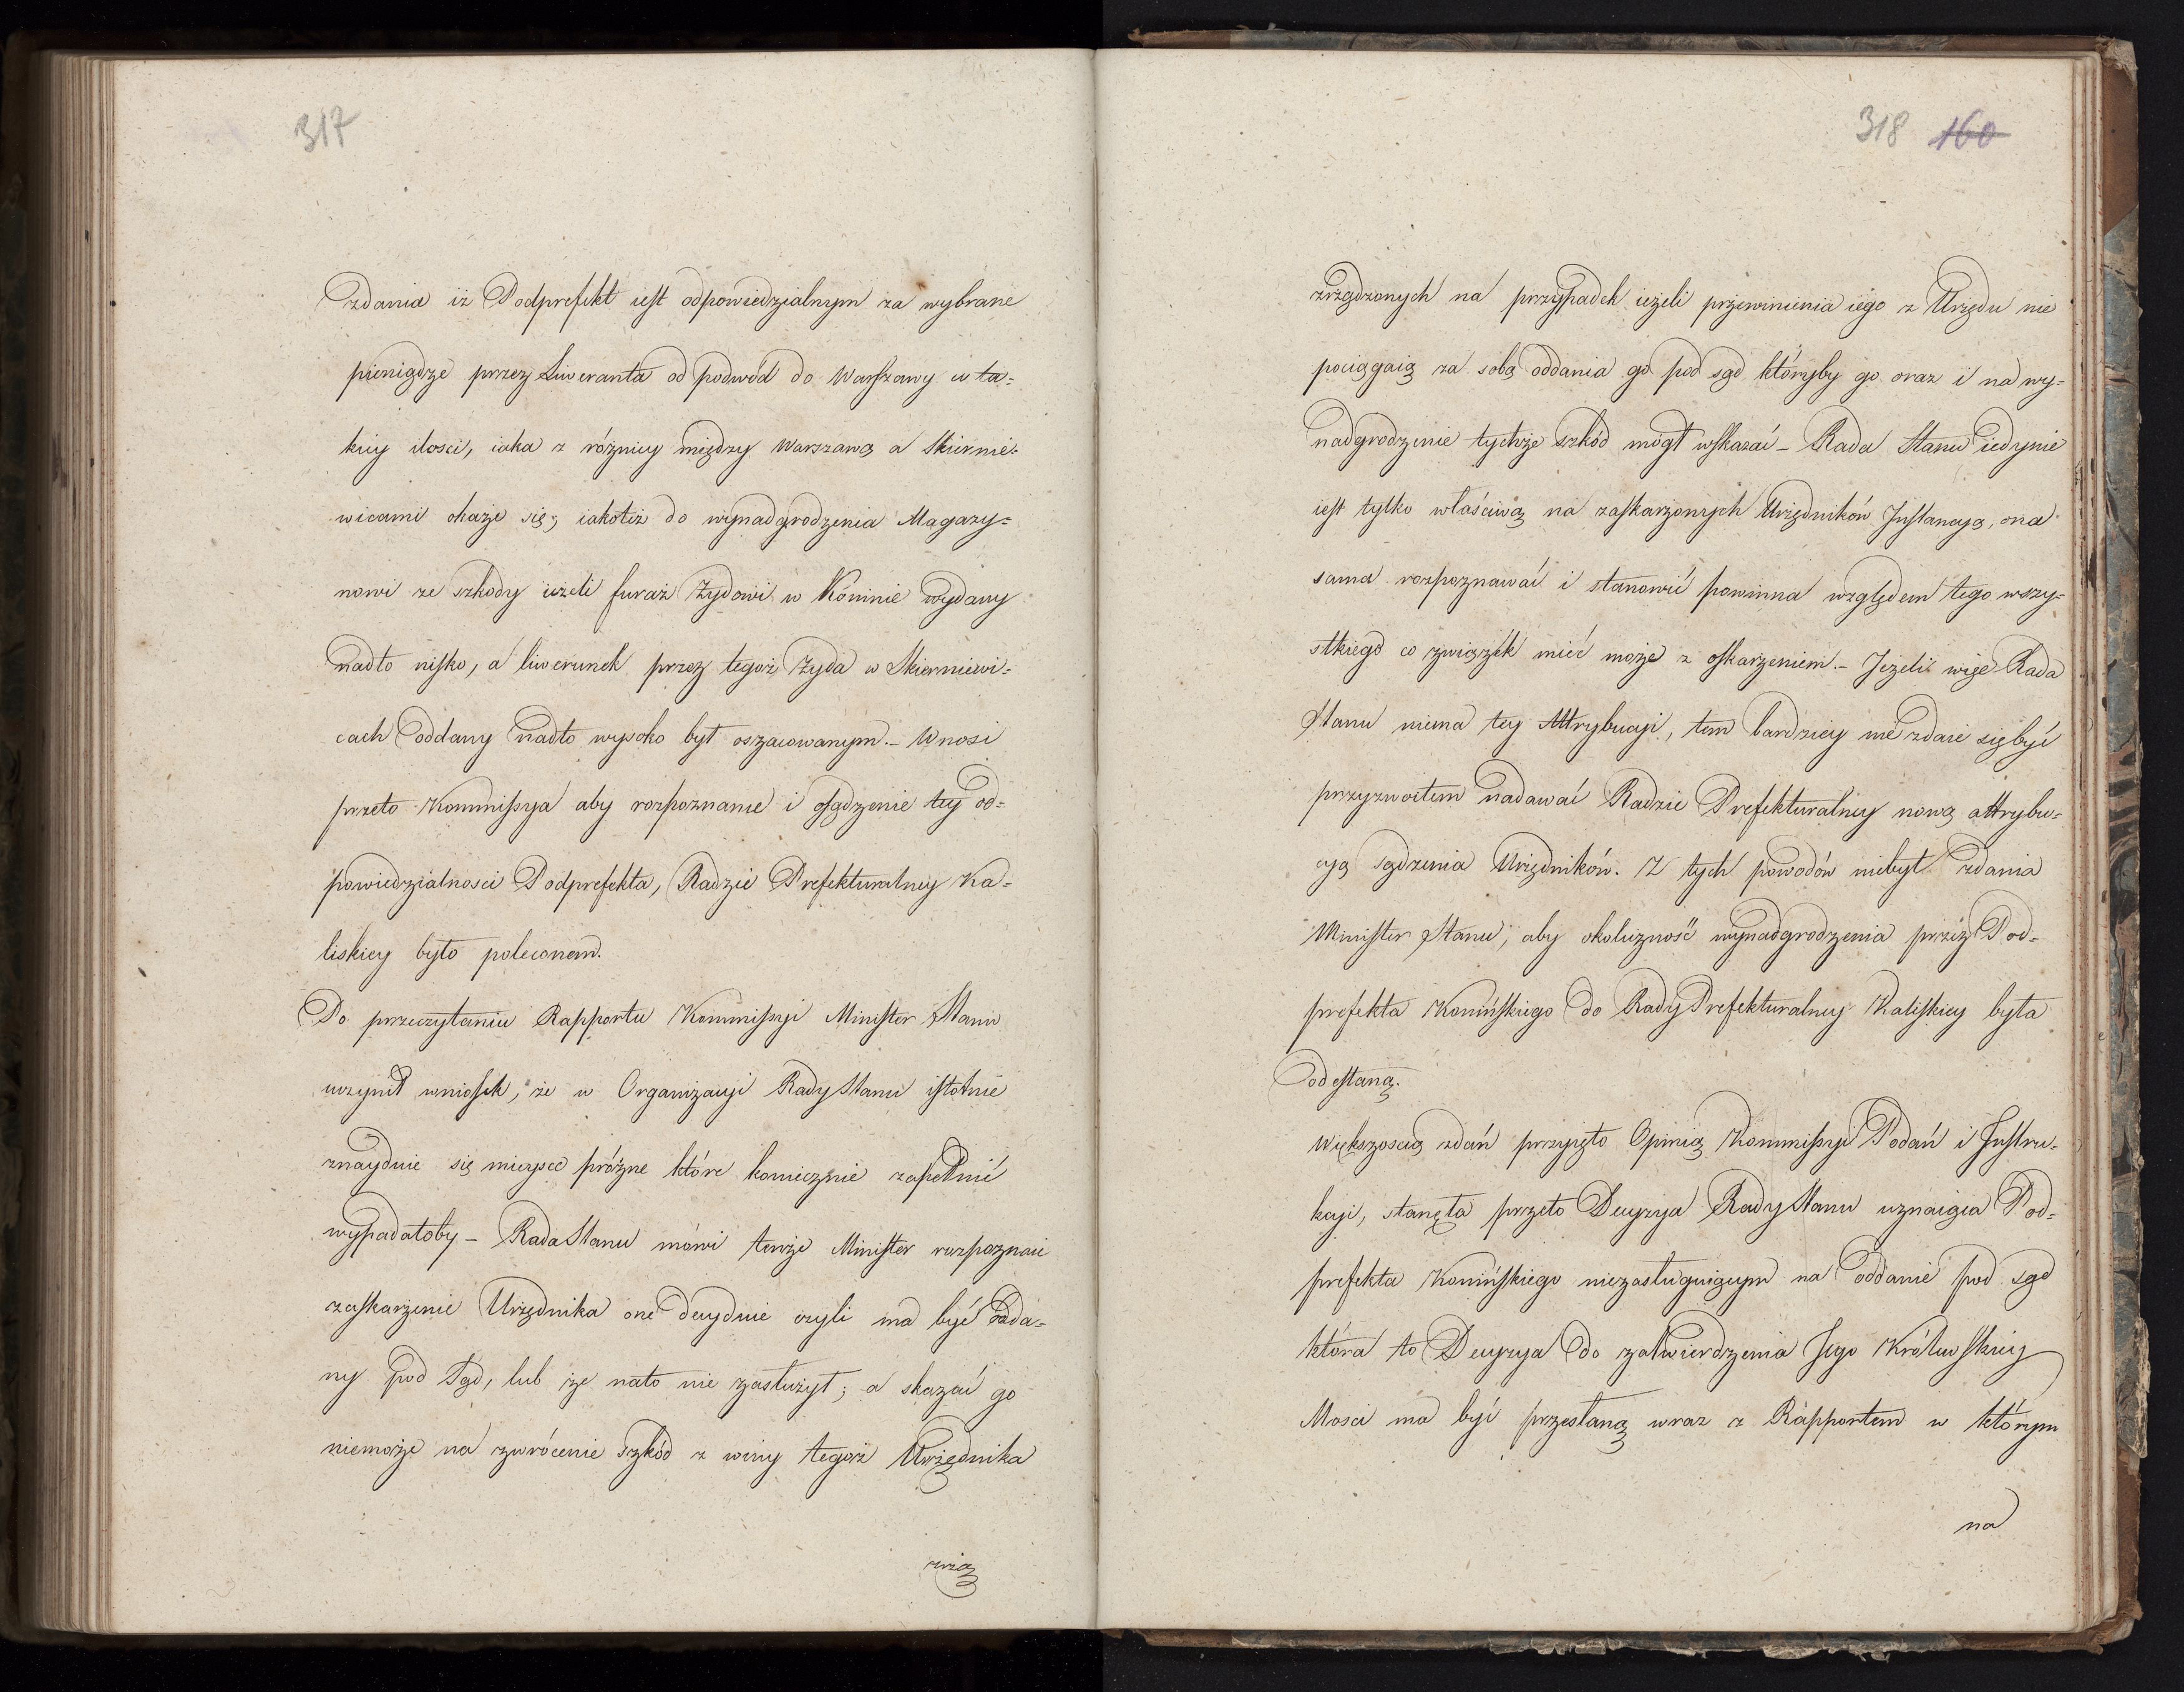 317
zdania iż Podprefekt iest odpowiedzialnym za wybrane
pieniądze przez Liweranta od podwód do Warszawy w ta=
kiey ilosci, iaka z różnicy między Warszawą a Skiernie=
wicami okaże się; iakoteż do wynadgrodzenia Magazy=
nowi ze szkody ieżeli furaż Żydowi w Koninie wydany
nadto nisko, a liwerunek przez tegoż Żyda w Skierniewi=
cach oddany nadto wysoko był oszacowanym. – Wnosi
przeto Kommissya aby rozpoznanie i osądzenie tey od=
powiedzialnosci Podprefekta, Radzie Prefekturalney Ka=
liskiey było poleconem.
Po przeczytaniu Rapportu Kommissyi Minister Stanu
uczynił wniosek, że w Organizacyi Rady Stanu istotnie
znayduie się mieysce próżne które koniecznie zapełnić
wypadałoby – Rada Stanu mówi tenże Minister rozpoznaie
zaskarżenie Urzędnika one decyduie czyli ma być odda=
ny pod Sąd, lub że nato nie zasłużył; a skazać go
niemoże na zwrócenie szkód z winy tegoż Urzędnika
zrzą
318 160
zrządzonych na przypadek ieżeli przewinienia iego z Urzędu nie
pociągaią za sobą oddania go pod sąd któryby go oraz i na wy=
nadgrodzenie tychże szkód mógł wskazać – Rada Stanu iedynie
iest tylko właściwą na zaskarżonych Urzędników Instancyą, ona
sama rozpoznawać i stanowić powinna względem tego wszy=
stkiego co związek mieć może z oskarżeniem. – Jeżeli więc Rada
Stanu niema tey Attrybucyi, tem bardziey nie zdaie się być
przyzwoitem nadawać Radzie Prefekturalney nową attrybu=
cyą sądzenia Urzędników. Z tych powodów niebył zdania
Minister Stanu, aby okoliczność wynadgrodzenia przez Pod=
prefekta Konińskiego do Rady Prefekturalney Kaliskiey była
odesłaną.
Większoscią zdań przyięto Opinią Kommissyi Podań i Instru=
kcyi, stanęła przeto Decyzya Rady Stanu uznaiąca Pod=
prefekta Konińskiego niezasługuiącym na oddanie pod sąd
która to Decyzya do zatwierdzenia Jego Królewskiey
Mosci ma być przesłaną wraz z Rapportem w którym
na